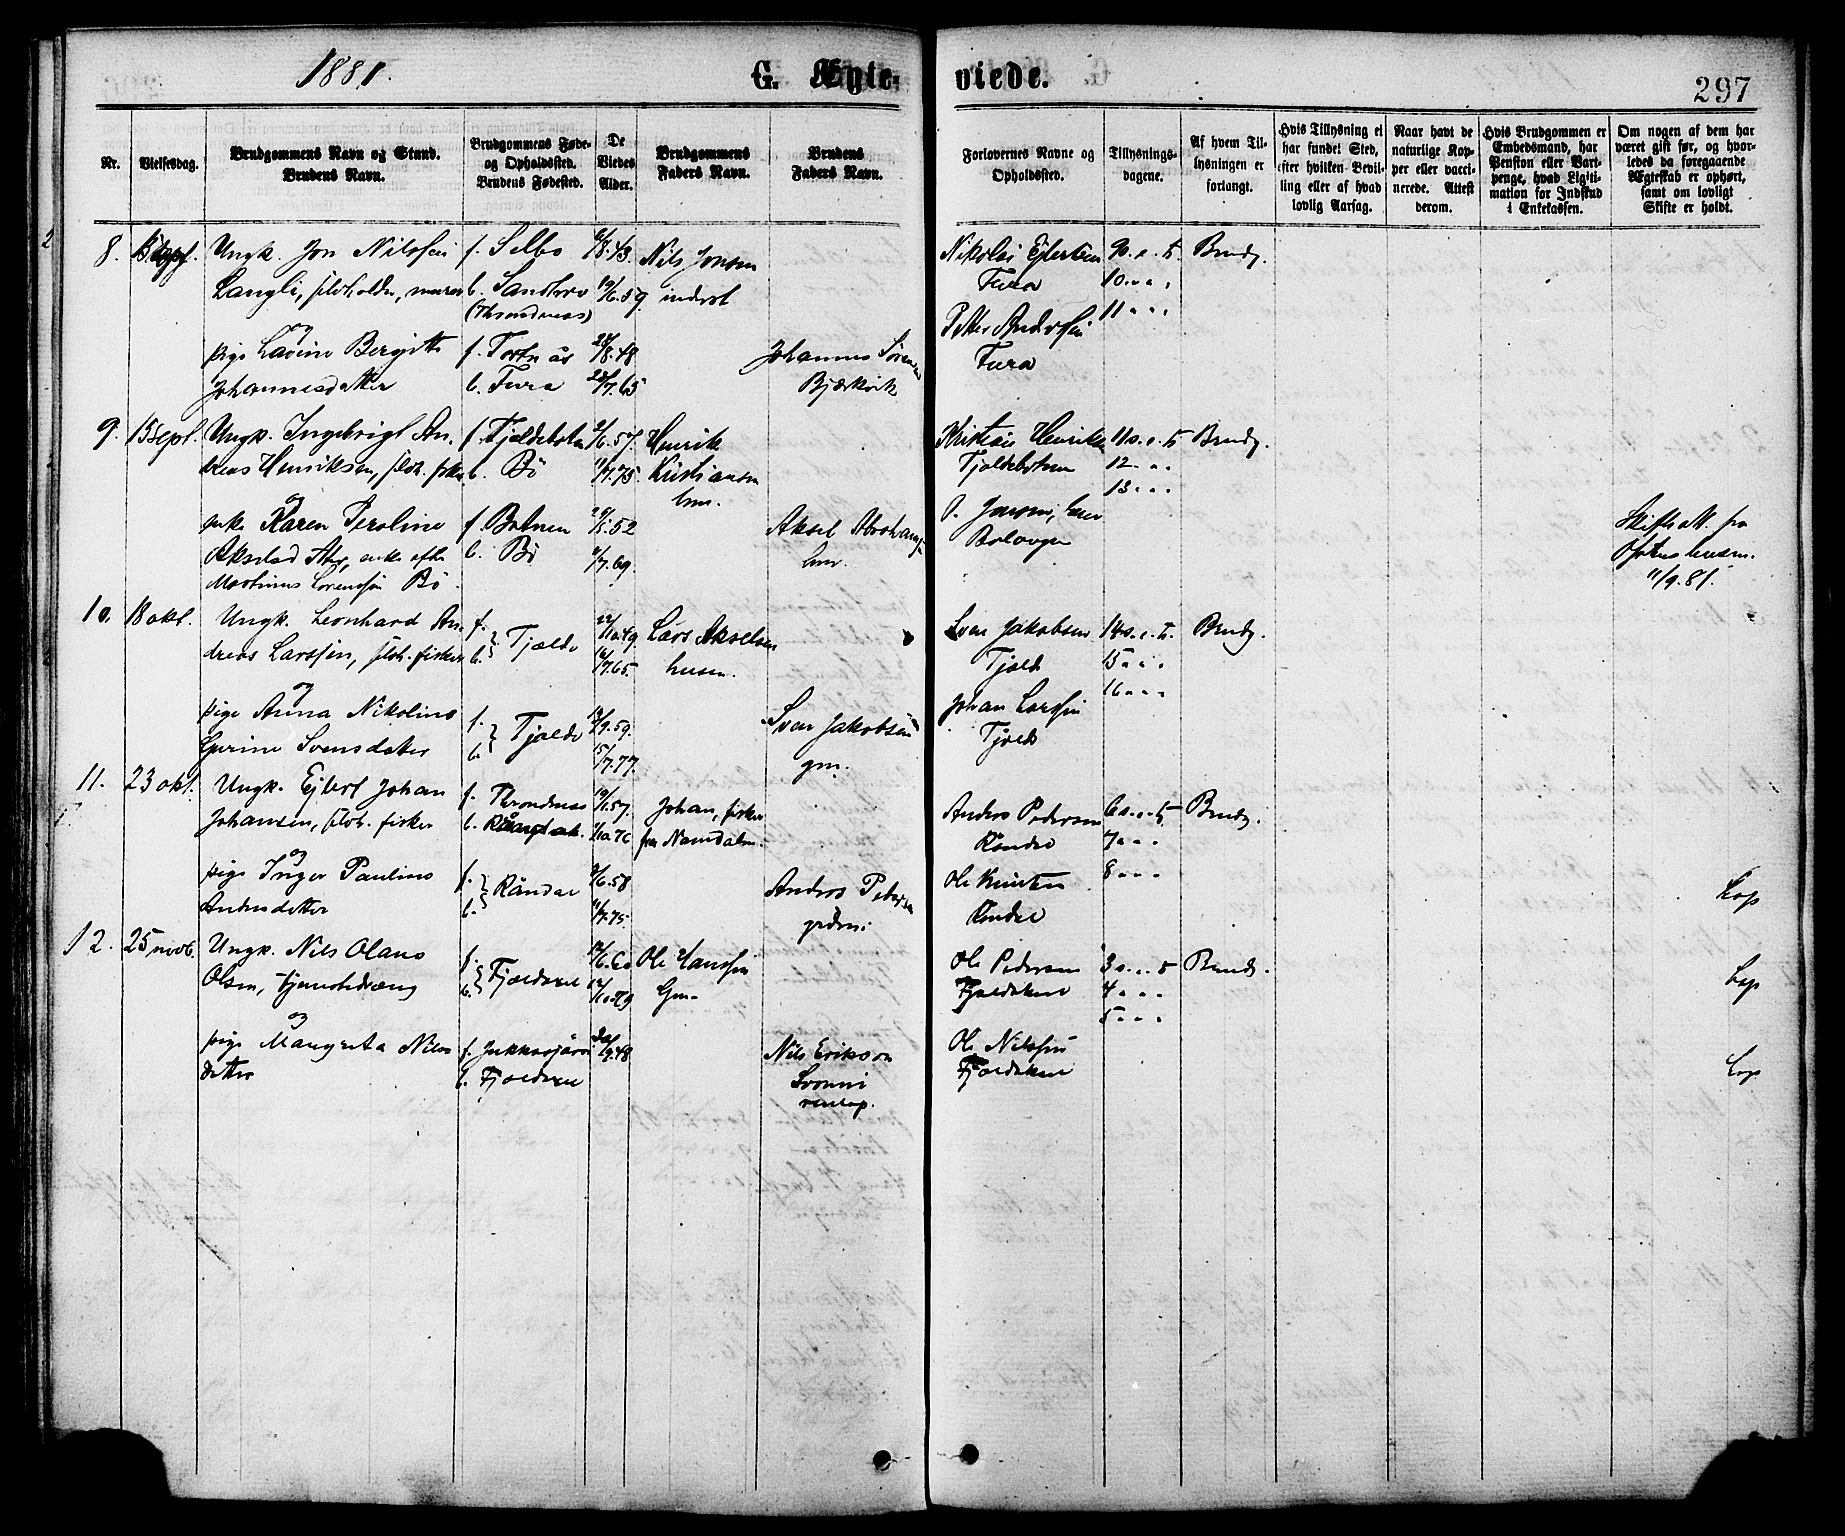 1881.
G. Ægte-
viede.
297
Nr.
Vielsesdag.
Brudgommens Navn og Stand.
Brudens Navn.
Brudgommens Føde-
og Opholdssted.
Brudens Fødested.
De
Viedes
Alder.
Brudgommens
Faders Navn.
Brudens
Faders Navn.
Forlovernes Navne og
Opholdssted.
Tillysnings-
dagene.
Af hvem Til-
lysningen er
forlangt.
Hvis Tillysning ei
har fundet Sted,
efter hvilken Bevil-
ling eller af hvad
lovlig Aarsag.
Naar havt de
naturlige Kop-
per eller vacci-
nerede. Attest
derom.
Hvis Brudgommen er
Embedsmand, har
Pension eller Vart-
penge, hvad Ligiti-
mation for Indskud
i Enkekassen.
Om nogen af dem har
været gift før, og hvor-
ledes da foregaaende
Ægteskab er ophørt,
samt om lovligt
Skifte er holdt.
8.
Ungk. Jon Nilssen
Langli, murer
og
pige Lavine Bergitte
Johannesdatter
f. Selbo
b. Sandtorv
(Throndenæs)
f. Tortnæs
b. Fura
Nils Jonsen
inderst
Johannes Sørensen
Bjerkvik
Nikolai Ejlertsen
Fura
Petter Andersen
Fura
9 s. e. tr.
10 " " "
11 " " "
Brudg.
9.
13 sept.
Ungk. Ingebrigt An-
dreas Henriksen, fisker
og
enke Karen Peroline
Akselsd. enke efter
Martinus Lorentsen Bø.
f. Fjeldebotn
b. Bø
f. Botnen
b. Bø
2/6.57.
11/7.75.
29/1.52
11/7.69.
Henrik
Kristiansen
hm.
Aksel Abrahamsen
hm.
Kristian Henriksen
Fjeldebotnen
J. Jonsen,
Bolvagen
11 s. e. tr.
12 " "
13 " "
Brudg.
Skifteatt. fra
Ofotens
11/9.81.
10.
18 okt.
Ungk. Leonhard An-
dreas Larssen, fisker
og
pige Anna Nikoline
Gurine Svensdatter
f.
b. } Tjelde
f.
b. } Tjelde
22/10.49.
16/7.65.
19/9.59.
15/7.77.
Lars Akselsen
husm.
Sven Jakobsen
gm.
Sven Jakobsen
Tjelde
Johan Larssen
Tjelde
14 s. e. tr.
15 " "
16 " "
Brudg.
11.
23 okt.
Ungk. Ejlert Johan
Johansen, fisker
og
pige Inger Pauline
Andersdatter
f. Throndenæs
f.
b. } Råndal
19/1.57.
2/6.58
11/7.75.
Johan, fisker
fra Namdalen.
Anders Pedersen
Anders Pedersen
Råndal
Ole Knutsen
Råndal
6 s. e. tr.
7 " "
8 " "
Brudg.
Lap
12.
25 novb.
Ungk. Nils Olaus
Olsen, tjenestedreng
og
pige Margreta Nils-
datter
f.
b. } Fjeldaxel
f. Jukkasjärvi
b. Fjeldaxel
Ole Hanssen
Gm.
Nils Erikson
Svonni
Ole Pedersen
Fjeldaksel
Ole Nilssen
Fjeldaksel
3 s. e. tr.
4 " "
5 " "
Brudg.
Lap
Lap